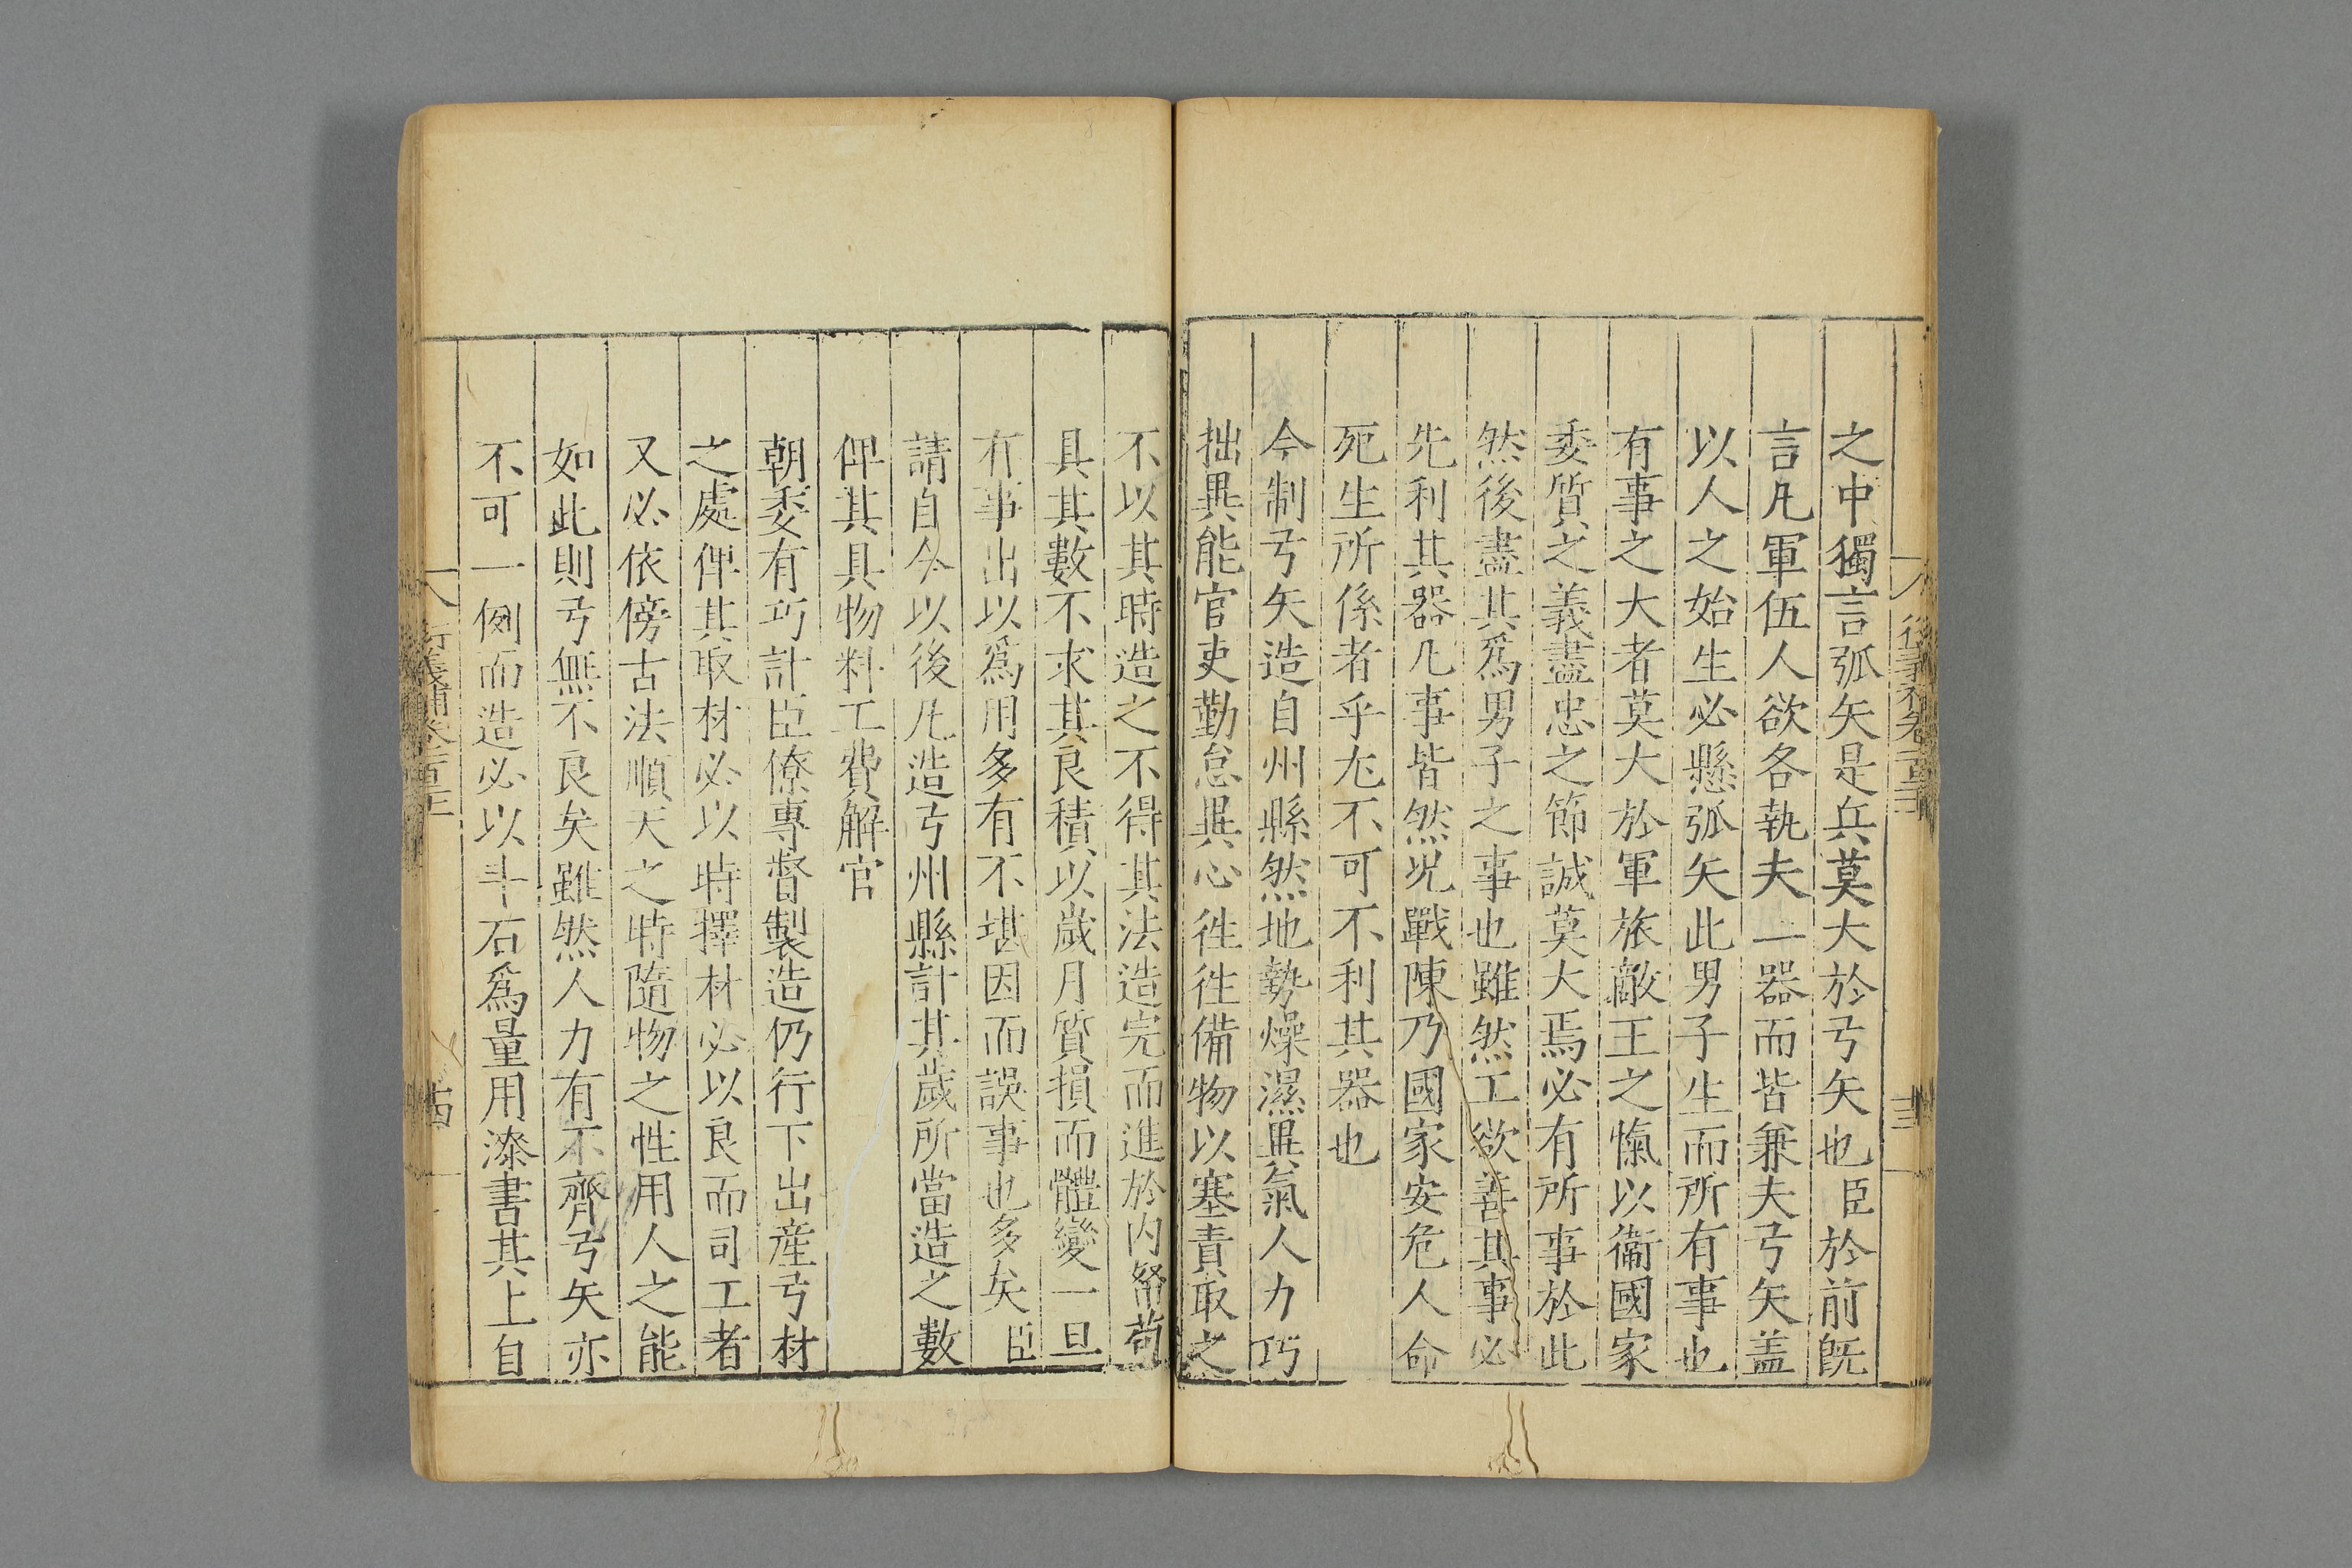 之中獨言弧矢是兵莫大於弓矢也臣於前旣
言凡軍伍人欲各執夫一器而皆兼夫弓矢盖
以人之始生必懸弧矢此男子生而所有事也
有事之大者莫大於軍旅敵王之愾以衞國家
委質之義盡忠之節誠莫大焉必有所事於此
然後盡其爲男子之事也雖然工欲善其事必
先利其器凡事皆然况戰陳乃國家安危人命
死生所係者乎尤不可不利其器也
今制弓矢造自州縣然地勢燥濕異氣人力巧
拙異能官吏勤怠異心徃徃備物以塞責取之
不以其時造之不得其法造完而進於内帑苟
具其數不求其良積以歲月質損而體變一旦
有事出以爲用多有不堪因而誤事也多矣臣
請自今以後凡造弓州縣計其歲所當造之數
俾其具物料工費解官
朝委有巧計臣僚專督製造仍行下出産弓材
之處俾其取材必以時擇材必以良而司工者
又必依傍古法順天之時隨物之性用人之能
如此則弓無不良矣雖然人力有不齊弓矢亦
不可一例而造必以斗石爲量用漆書其上自